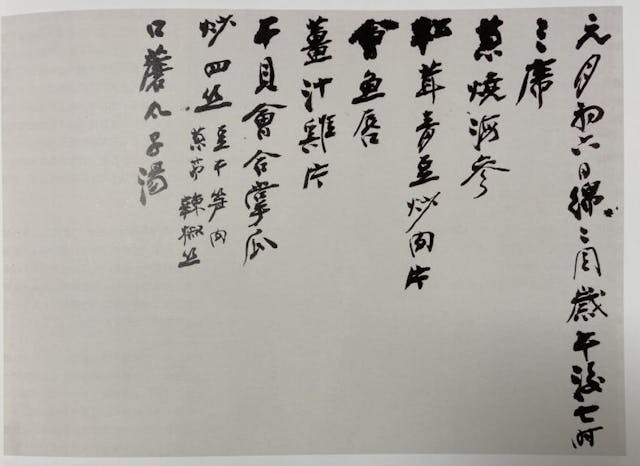 元月初六日綿〻二周歲午後七时
二席
葱燒海參
松茸青豆炒肉片
會魚唇
薑汁雞片
干貝會合掌瓜
炒四丝
豆干笋肉
辣椒丝
口蘑丸子湯